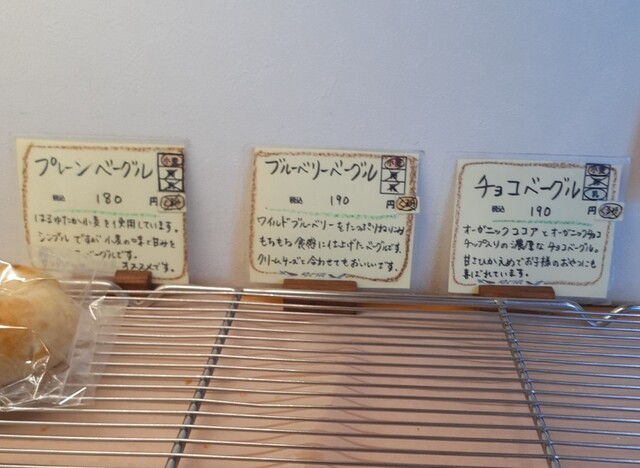 プレーンベーグル
小麦
税込 180 円
はるゆたか小麦を使用しています。
シンプルですが小麦の味と甘みを
ベーグルです。
オススメです。
ブルーベリーベーグル
小麦
税込 190 円
ワイルドブルーベリーをたっぷりねりこみ
もちもち食感に仕上げたベーグルです。
クリームチーズと合わせてもおいしいです。
チョコベーグル
小麦
税込 190 円
オーガニックココアとオーガニックチョコ
チップ入りの濃厚なチョコベーグル。
甘さひかえめでお子様のおやつにも
喜ばれています。